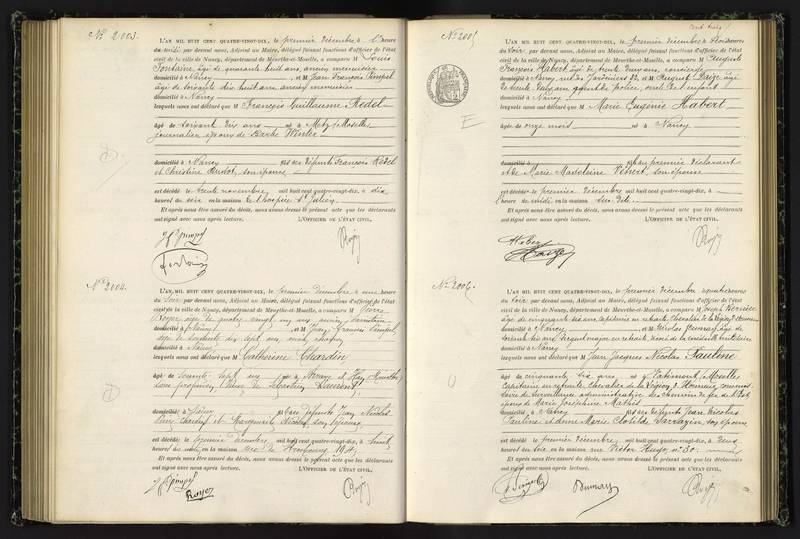 No 2003.
L'AN MIL HUIT CENT QUATRE-VINGT-DIX, le premier décembre à l'heure
du midi par devant nous, Adjoint au Maire, délégué faisant fonctions d'officier de l'état
civil de la ville de Nancy, département de Meurthe-et-Moselle, a comparu M Louis
Fontaine, âgé de quarante huit ans, ancien menuisier
domicilié à Nancy, et M Jean François Pimpel
âgé de soixante dix huit ans ancien menuisier
domicilié à Nancy
lesquels nous ont déclaré que M François Guillaume Redel
âgé de soixant dix ans né à Metz (Moselle)
journalier, époux de Barbe Winter
domicilié à Nancy fils des défunts François Redel
et Christine, son épouse
est décédé le trente novembre mil huit cent quatre-vingt-dix, à dix
heures du soir en la maison l'hospice St Julien
Et après nous être assuré du décès, nous avons dressé le présent acte que les déclarants
ont signé avec nous après lecture. L'OFFICIER DE L'ÉTAT CIVIL,
No 2004.
L'AN MIL HUIT CENT QUATRE-VINGT-DIX, le premier décembre à une heure
du soir par devant nous, Adjoint au Maire, délégué faisant fonctions d'officier de l'état
civil de la ville de Nancy, département de Meurthe-et-Moselle, a comparu M Pierre
Royer âgé de quatre vingt un ans
domicilié à Nancy et M Jean François Pimpel,
âgé de soixante dix sept ans
domicilié à Nancy
lesquels nous ont déclaré que M Catherine Chardin
âgé de soixante sept ans née à
sans profession, Veuve de Sébastien Laurent
domicilié à Nancy fille des défunts Jean Nicolas
Chardin et Marguerite Nicolas, son épouse
est décédé le premier décembre mil huit cent quatre-vingt-dix, à
heures du en la maison rue de Strasbourg 194
Et après nous être assuré du décès, nous avons dressé le présent acte que les déclarants
ont signé avec nous après lecture. L'OFFICIER DE L'ÉTAT CIVIL,
Royer
No 2005
L'AN MIL HUIT CENT QUATRE-VINGT-DIX, le premier décembre à trois heures
du soir par devant nous, Adjoint au Maire, délégué faisant fonctions d'officier de l'état
civil de la ville de Nancy, département de Meurthe-et-Moselle, a comparu M Auguste
François Habert, âgé de trente deux ans
domicilié à Nancy, rue des Jardiniers 32, et M August
de trente ans, agent de police, oncle de l'enfant
domicilié à Nancy
lesquels nous ont déclaré que M Marie Eugénie Habert
âgée de onze mois née à Nancy
domicilié à fille du premier déclarant
et de Marie Madeleine, son épouse
est décédé le premier décembre mil huit cent quatre-vingt-dix, à
l'heure de midi en la maison sus dite
Et après nous être assuré du décès, nous avons dressé le présent acte que les déclarants
ont signé avec nous après lecture. L'OFFICIER DE L'ÉTAT CIVIL,
No 2006.
L'AN MIL HUIT CENT QUATRE-VINGT-DIX, le premier décembre à quatre heures
du soir par devant nous, Adjoint au Maire, délégué faisant fonctions d'officier de l'état
civil de la ville de Nancy, département de Meurthe-et-Moselle, a comparu M Joseph
âgé de cinquante six ans, capitaine en retraite Chevalier de la Légion d'Honneur
domicilié à Nancy, et M Nicolas Dumay, âgé de
soixante ans, sergent major en retraite, décoré de la médaille militaire
domicilié à Nancy
lesquels nous ont déclaré que M Jean Jacques Nicolas Pauline
âgé de cinquante six ans né à (Moselle)
Capitaine en retraite, Chevalier de la Légion d'Honneur, commis-
saire de surveillance administrative des chemins de fer de l'Est
époux de Marie Joséphine Mathis
domicilié à Nancy fils des défunts Jean Nicolas
Pauline et Anne Marie Clotilde Sarrazin, son épouse
est décédé le premier décembre mil huit cent quatre-vingt-dix, à deux
heures du soir en la maison rue Victor Hugo, n° 30.
Et après nous être assuré du décès, nous avons dressé le présent acte que les déclarants
ont signé avec nous après lecture. L'OFFICIER DE L'ÉTAT CIVIL,
Dumay